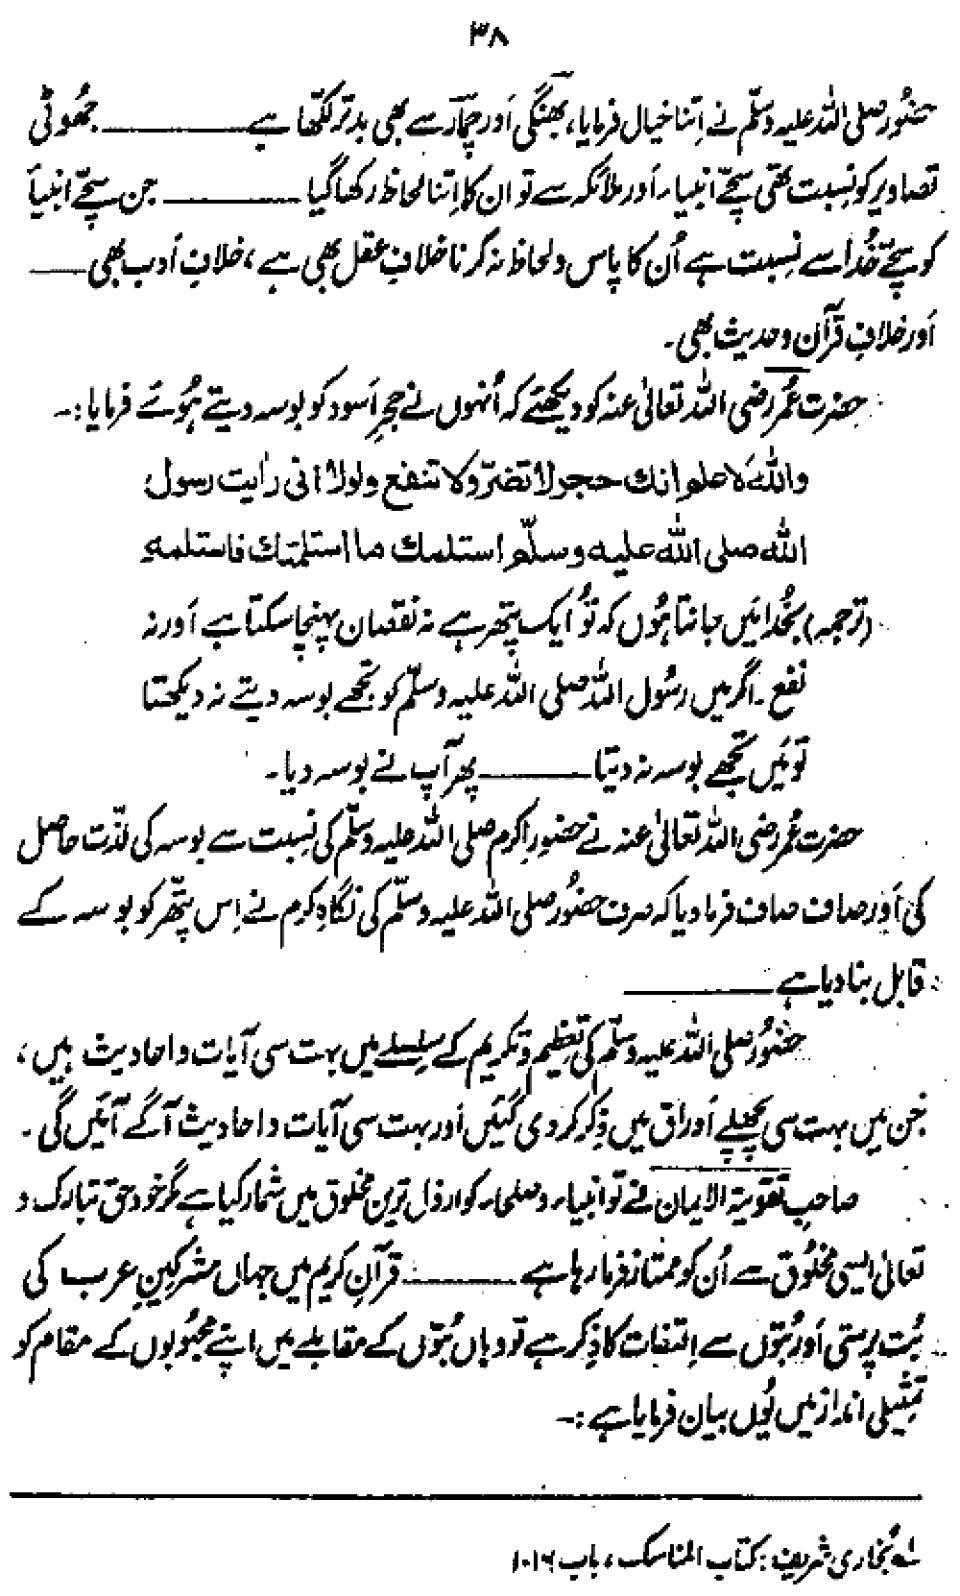 ۳۸
حضُور صلی اللہ علیہ وسلّم نے اِتنا خیال فرمایا، بھنگی اَور چمار سے بھی بدتر لکھّا ہے ــــــــ جھُوٹی
تصاویر کو نِسبت تھی سچّے انبیاء اَور ملائکہ سے تو ان کا اِتنا لحاظ رکھا گیا ــــــــ جن سچّے انبیاَ
کو سچّے خُدا سے نِسبت ہے اُن کا پاس و لحاظ نہ کرنا خلافِ عقل بھی ہے، خلافِ اَدب بھی ــــ
اَور خلافِ قرآن و حدیث بھی۔
حضرت عُمر رضی اللہ تعالیٰ عنہ کو دیکھئے کہ اُنہوں نے حجرِ اَسود کو بوسہ دیتے ہُوئے فرمایا:۔
واللہ لاعلم انك حجر لا تضرّ ولا تنفع ولولا انی رایت رسول
اللہ صلی اللہ علیہ وسلّم استلمك ما استلمتك فاستلمہ
(ترجمہ) بخُدا مَیں جانتا ہُوں کہ تُو ایک پتھر ہے نہ نقصان پہنچا سکتا ہے اَور نہ
نفع ۔ اگر میں رسُول اللہ صلی اللہ علیہ وسلّم کو تجھے بوسہ دیتے نہ دیکھتا
تو مَیں تجھے بوسہ نہ دیتا ــــــــ پھر آپ نے بوسہ دیا۔
حضرت عُمر رضی اللہ تعالیٰ عنہ نے حضورِ اکرم صلی اللہ علیہ وسلّم کی نِسبت سے بوسہ کی لذّت حاصل
کی اَور صاف صاف فرما دیا کہ صرف حضُور صلی اللہ علیہ وسلّم کی نگاہِ کرم نے اِس پتّھر کو بوسہ کے
قابل بنا دیا ہے ــــــــ
حضُور صلی اللہ علیہ وسلّم کی تعظیم و تکریم کے سلسلے میں بہت سی آیات و احادیث ہیں،
جن میں بہت سی پچھلے اَوراق میں ذِکر کر دی گئیں اَور بہت سی آیات و احادیث آگے آئیں گی۔
صاحبِ تقویۃ الایمان نے تو انبیاء و صلحاء کو ارذل ترین مخلوق میں شمار کیا ہے مگر خود حق تبارک و
تعالیٰ ایسی مخلُوق سے اُن کو ممتاز فرما رہا ہے ــــــــ قرآنِ کریم میں جہاں مشرکینِ عرب کی
بُت پرستی اَور بُتوں سے اِلتفات کا ذِکر ہے تو وہاں بُتوں کے مقابلے میں اپنے محبُوبوں کے مقام کو
تمثیلی انداز میں یُوں بیان فرمایا ہے:۔
لہ بُخاری شریف: کتاب المناسک، باب ۱۰۱۶